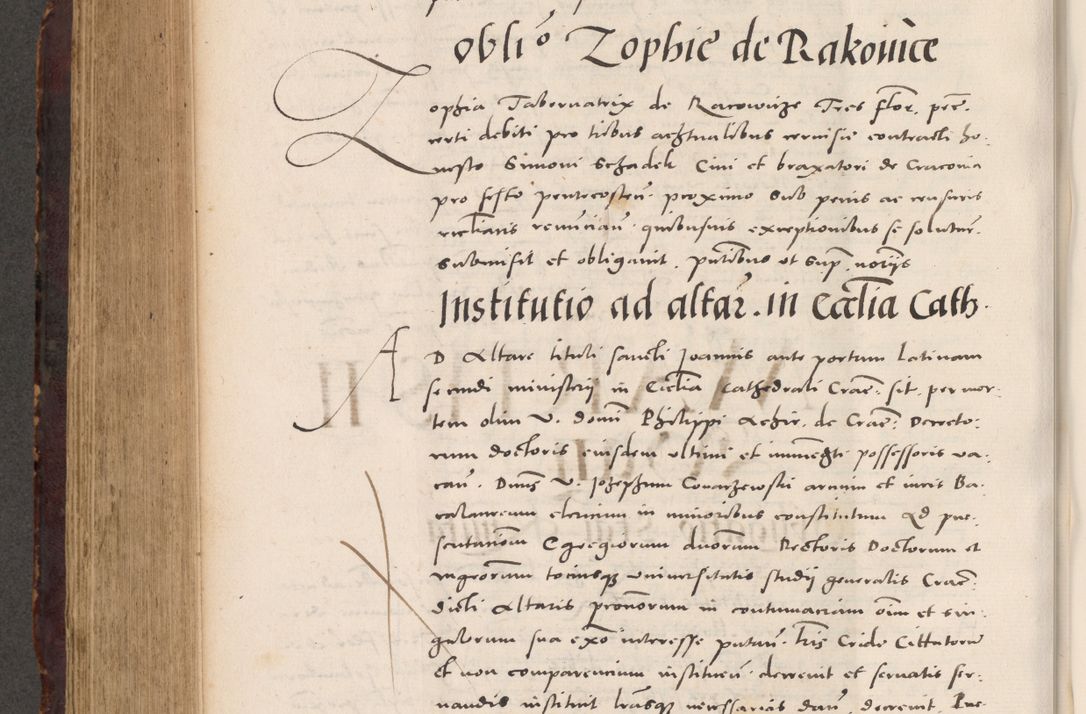 Oblio Zophie de Rakowice
Zophia Tabernatrix de Racowicze Tres flor. pec.
certi debiti pro tribus achtualibus cervisie contracti ho.
nesto Simoni Schadek Civi et braxatori de Cracovia
pro festo pentecosten proximo Sub penis ac censuris
ecclasticis renuncian quibusvis exceptionibus se solutur.
submisit et obligavit. pntibus ut Sup. notarijs
Institutio ad altar. in Ecclia Cath.
AD Altare tituli sancti Joannis ante portam Latinam
secundi ministerij in Ecclia Cathedrali Crac. sit. per mor.
tem olim V. domini Philippi de Crac. Decreto.
rum doctoris eiusdem ultimi et immediati possessoris va.
can. Dnus V. Josephum artium et iuris Ba.
calaureum clericum in minoribus constitutum Ad pre.
sentationem Egregiorum duorum Rectoris Doctorum et
mgrorum totiusque universitatis studij generalis Crac.
dicti Altaris pronorum in contumaciam oim et sin.
gulorum sua exo interesse putan. Lris Cride Citatorum
et non comparencium instituen. decrevit et servatis ser.
vandis instituit Lrasque necessarias dari decrevit.